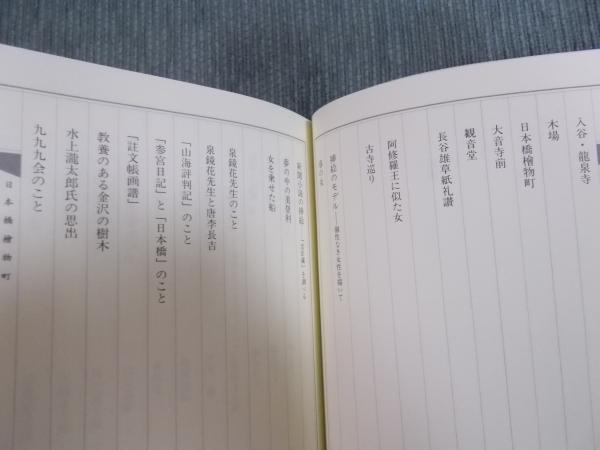 入谷・龍泉寺
木場
日本橋檜物町
大音寺前
観音堂
長谷雄草紙礼讃
阿修羅王に似た女
古寺巡り
挿絵のモデル——個性なき女性を描いて
夢の中の美登利
女を乗せた船
泉鏡花先生のこと
泉鏡花先生と唐李長吉
「山海評判記」のこと
「参宮日記」と「日本橋」のこと
「註文帳画譜」
教養のある金沢の樹木
水上瀧太郎氏の思出
九九九会のこと
日本橋檜物町